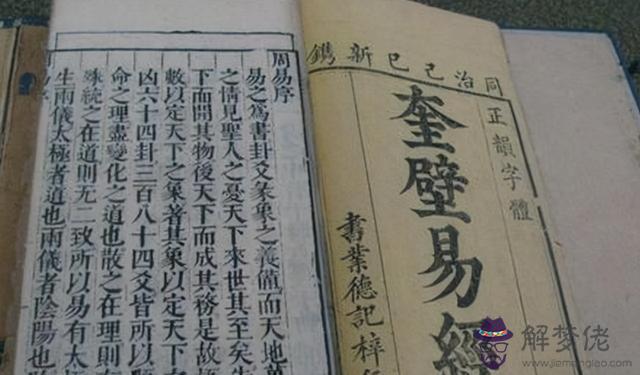 同治己巳新鐫
正韻字體
奎壁易經
書業德記梓
周易序
易之為書卦爻彖象之義備而天地萬
之情見聖人之憂天下來世其至矣先
下而開其物後天下而成其務是故極
數以定天下之象著其象以定天下
凶六十四卦三百八十四爻皆所以
命之理盡變化之道也散之在理則有
殊統之在道則无二致所以易有太極
生兩儀太極者道也兩儀者陰陽也
解梦佬
www.jiemenglao.com